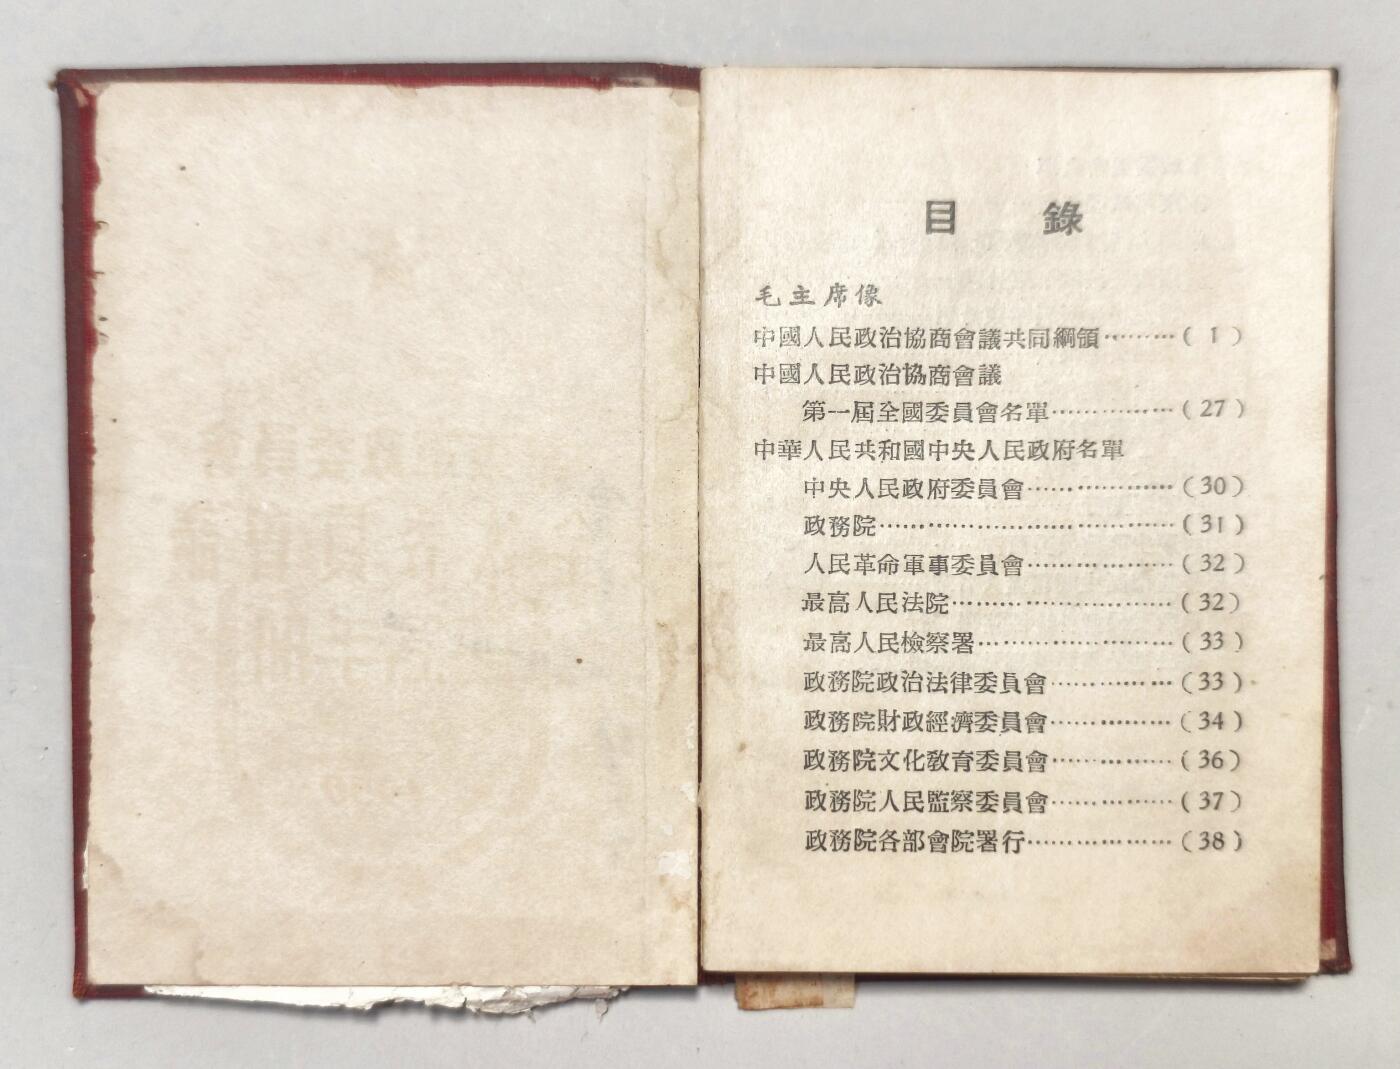 目 錄
毛主席像
中國人民政治協商會議共同綱領………( 1 )
中國人民政治協商會議
第一屆全國委員會名單……………( 27 )
中華人民共和國中央人民政府名單
中央人民政府委員會………………( 30 )
政務院………………………………( 31 )
人民革命軍事委員會………………( 32 )
最高人民法院………………………( 32 )
最高人民檢察署……………………( 33 )
政務院政治法律委員會……………( 33 )
政務院財政經濟委員會……………( 34 )
政務院文化敎育委員會……………( 36 )
政務院人民監察委員會……………( 37 )
政務院各部會院署行………………( 38 )